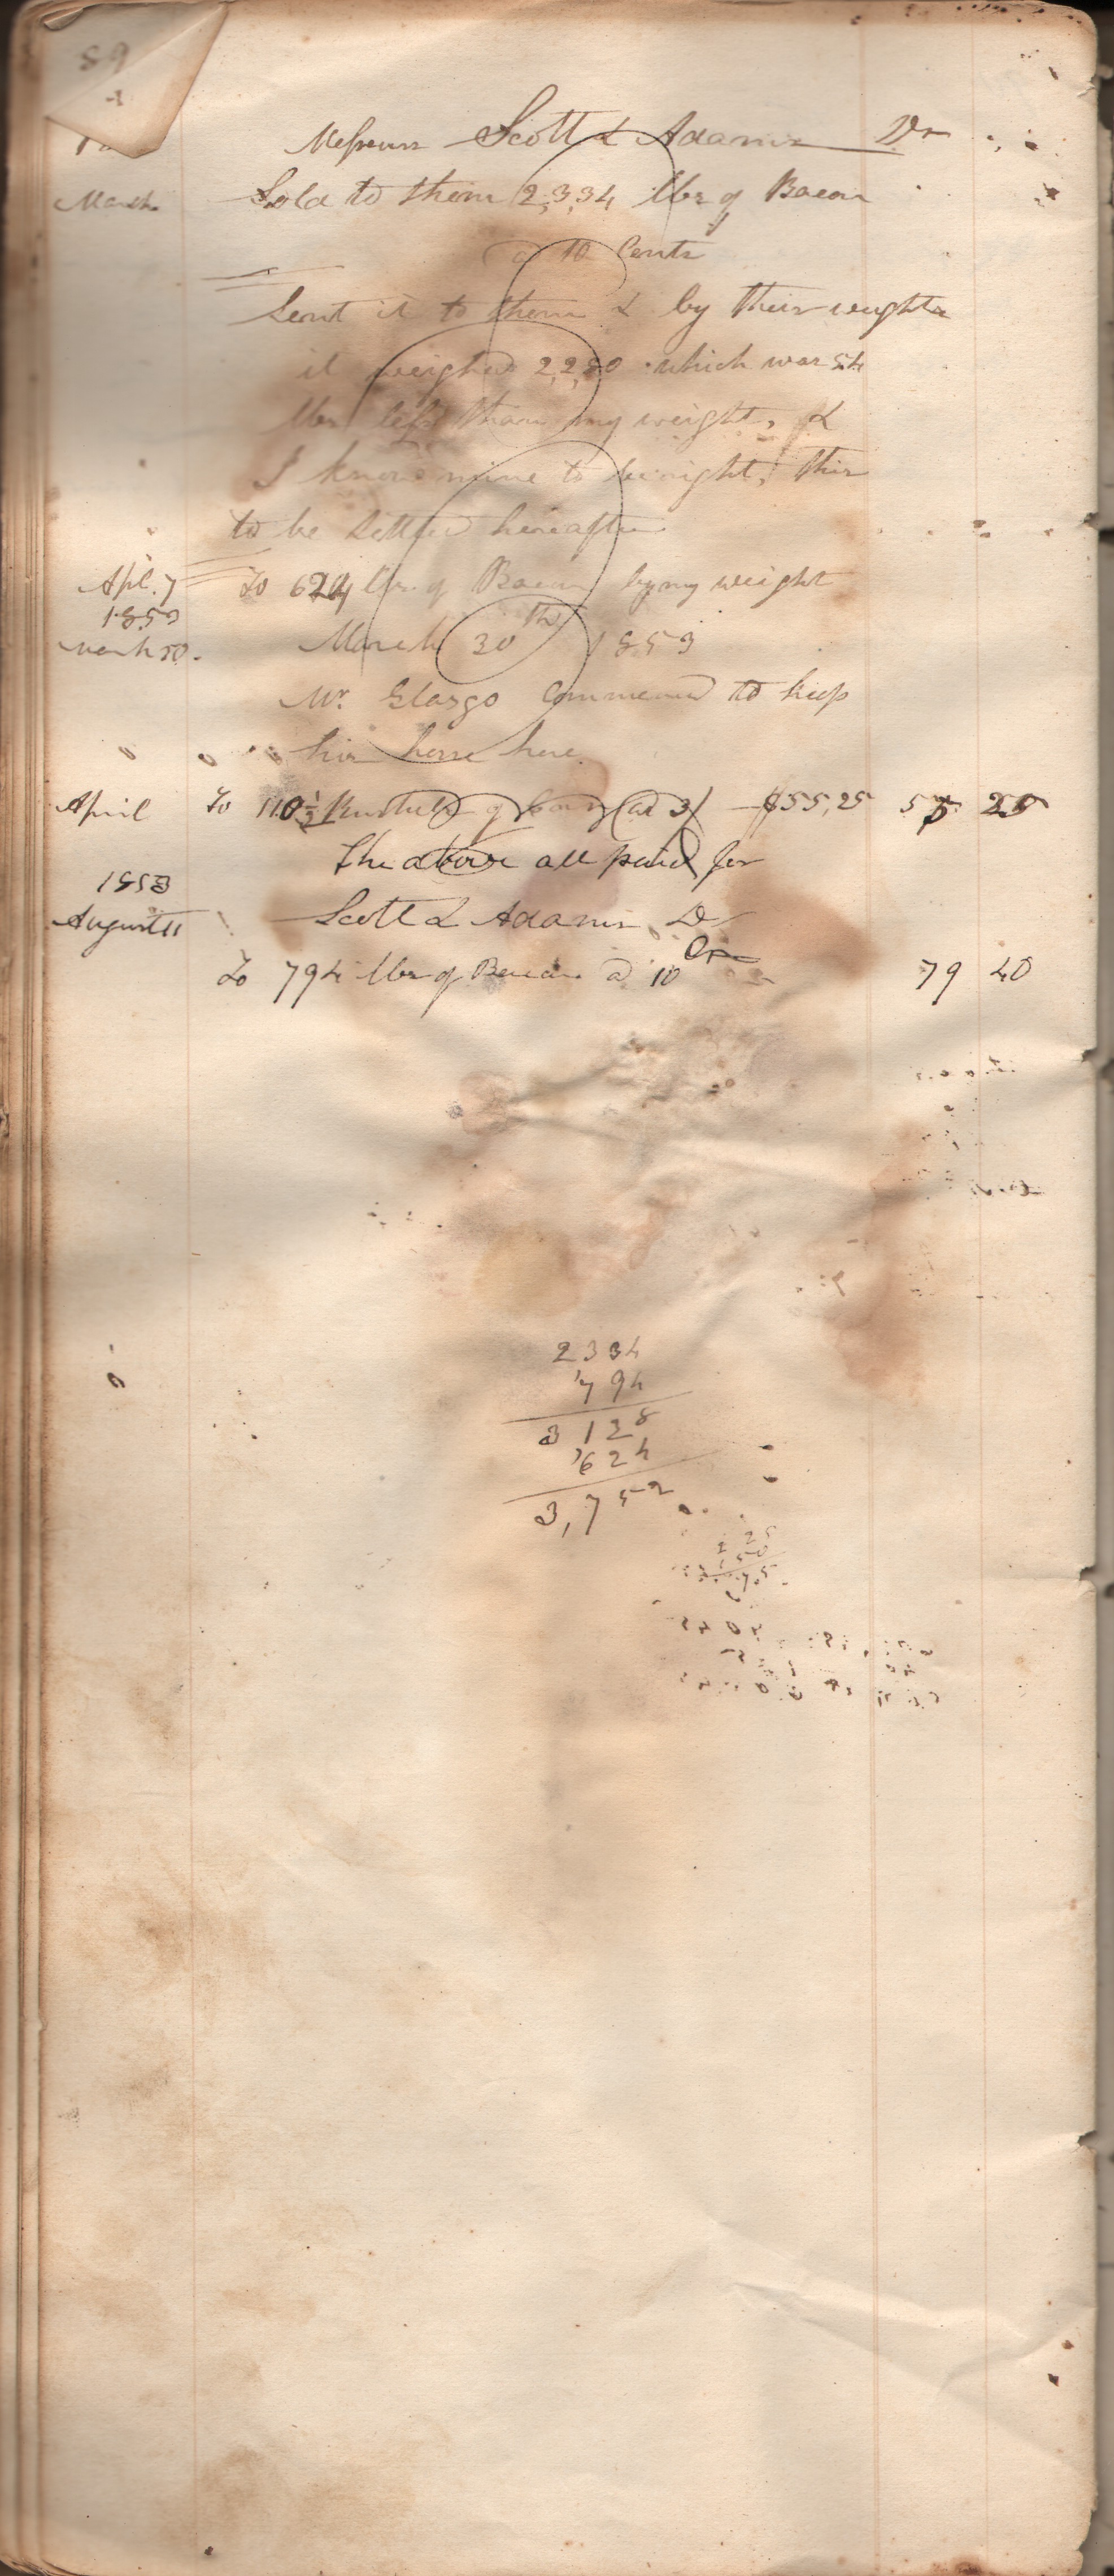 89
Messrs Scott & Adams Dr
March Sold to them 2,334 lbs of Bacon
@ 10 Cents
Sent it to them & by their weights
it weighed 2,280 which was 54
lbs less than my weight, &
I know mine to be right, this
to be settled hereafter
Apl. 7 To 624 lbs of Bacon by my weight
1853
March 30. March 30th 1853
Mr. Glasgo Commenced to keep
his horse here
April To 110 1/2 Bushels of Corn (at 3/ $55,25 55 25
The above all paid for
1853
August 11 Scott & Adams Dr
To 794 lbs of Bacon @ 10 79 40
2334
794
3128
624
3,752